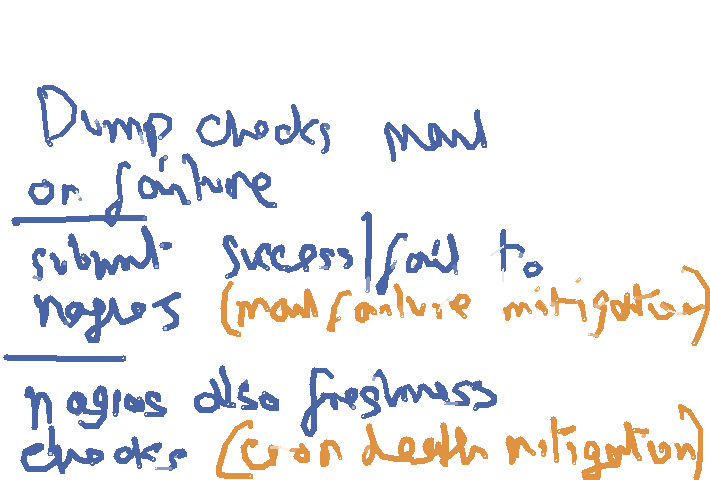 Dump checks mail
on failure
submit success/fail to
nagios (mail failure mitigation)
nagios also freshness
checks (cron death mitigation)